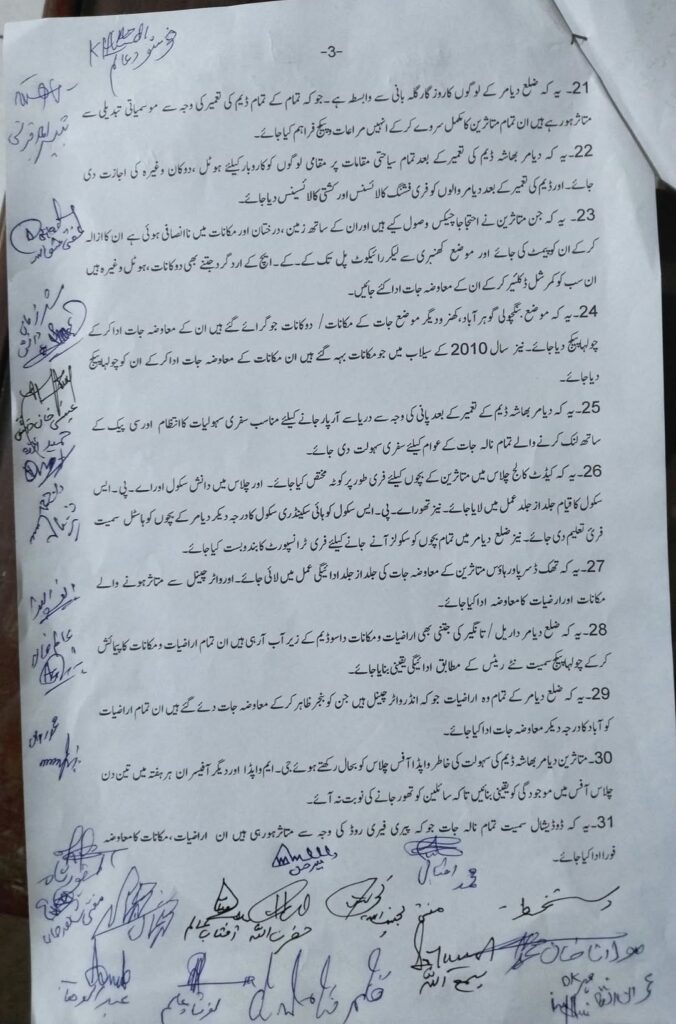 -3-
21۔ یہ کہ ضلع دیامر کے لوگوں کا روزگار گلہ بانی سے وابستہ ہے۔ جو کہ تمام کے تمام ڈیم کی تعمیر کی وجہ سے موسمیاتی تبدیلی سے
متاثر ہو رہے ہیں ان تمام متاثرین کا مکمل سروے کر کے انہیں مراعات و پیکج فراہم کیا جائے۔
22۔ یہ کہ دیامر بھاشہ ڈیم کی تعمیر کے بعد تمام سیاحتی مقامات پر مقامی لوگوں کو کاروبار کیلئے ہوٹل، دوکان وغیرہ کی اجازت دی
جائے۔ اور ڈیم کی تعمیر کے بعد دیامر والوں کو فری فشنگ کا لائسنس اور کشتی کا لائسینس دیا جائے۔
23۔ یہ کہ جن متاثرین نے احتجاجا چیکس وصول کیے ہیں اور ان کے ساتھ زمین، درختان اور مکانات میں ناانصافی ہوئی ہے ان کا ازالہ
کر کے ان کو پیمنٹ کی جائے اور موضع کھنبری سے لیکر رائیکوٹ پل تک کے۔ کے۔ ایچ کے ارد گرد جتنے بھی دوکانات، ہوٹل وغیرہ ہیں
ان سب کو کمرشل ڈکلئیر کر کے ان کے معاوضہ جات ادا کئے جائیں۔
24۔ یہ کہ موضع گوہر آباد، کھنر و دیگر موضع جات کے مکانات / دوکانات جو گرائے گئے ہیں ان کے معاوضہ جات ادا کر کے
چولہا پیکج دیا جائے۔ نیز سال 2010 کے سیلاب میں جو مکانات بہہ گئے ہیں ان مکانات کے معاوضہ جات ادا کر کے ان کو چولہا پیکج
دیا جائے۔
25۔ یہ کہ دیامر بھاشہ ڈیم کے تعمیر کے بعد پانی کی وجہ سے دریا سے آر پار جانے کیلئے مناسب سفری سہولیات کا انتظام اور سی پیک کے
ساتھ لنک کرنے والے تمام نالہ جات کے عوام کیلئے سفری سہولت دی جائے۔
26۔ یہ کہ کیڈٹ کالج چلاس میں متاثرین کے بچوں کیلئے فری طور پر کوٹہ مختص کیا جائے۔ اور چلاس میں دانش سکول اور اے۔ پی۔ ایس
سکول کا قیام جلد از جلد عمل میں لایا جائے۔ نیز تھور اے۔ پی۔ ایس سکول کو ہائی سکینڈری سکول کا درجہ دیکر دیامر کے بچوں کو ہاسٹل سمیت
فری تعلیم دی جائے۔ نیز ضلع دیامر میں تمام بچوں کو سکولز آنے جانے کیلئے فری ٹرانسپورٹ کا بندوبست کیا جائے۔
27۔ یہ کہ تھک ڈسر پاور ہاؤس متاثرین کے معاوضہ جات کی جلد از جلد ادائیگی عمل میں لائی جائے۔ اور واٹر چینل سے متاثر ہونے والے
مکانات اور ارضیات کا معاوضہ ادا کیا جائے۔
28۔ یہ کہ ضلع دیامر داریل / تانگیر کی جتنی بھی اراضیات و مکانات داسو ڈیم کے زیر آب آ رہی ہیں ان تمام اراضیات و مکانات کا پیمائش
کر کے چولہا پیکج سمیت نئے ریٹس کے مطابق ادائیگی یقینی بنایا جائے۔
29۔ یہ کہ ضلع دیامر کے تمام وہ اراضیات جو کہ انڈر واٹر چینل ہیں جن کو بنجر ظاہر کر کے معاوضہ جات دئے گئے ہیں ان تمام اراضیات
کو آباد کا درجہ دیکر معاوضہ جات ادا کیا جائے۔
30۔ متاثرین دیامر بھاشہ ڈیم کی سہولت کی خاطر واپڈا آفس چلاس کو بحال رکھتے ہوئے جی۔ ایم واپڈا اور دیگر آفیسران ہر ہفتہ میں تین دن
چلاس آفس میں موجودگی کو یقینی بنائیں تا کہ سائلین کو تھور جانے کی نوبت نہ آئے۔
31۔ یہ کہ ڈوڈیشال سمیت تمام نالہ جات جو کہ پیری فیری روڈ کی وجہ سے متاثر ہو رہی ہیں ان اراضیات، مکانات کا معاوضہ
فورا ادا کیا جائے۔
دستخط
مولانا
سمیع اللہ
حضرت اللہ
آفتاب عالم